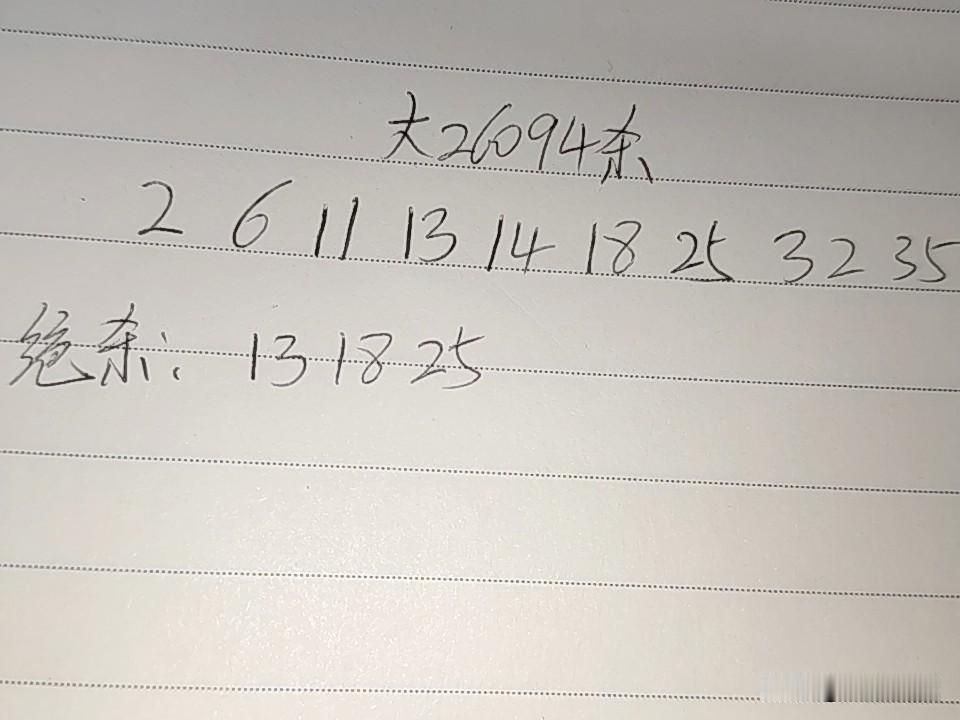 大26094杀
2 6 11 13 14 18 25 32 35
绝杀: 13 18 25